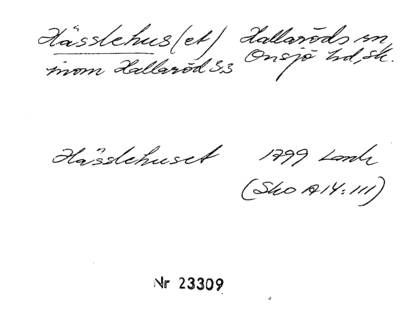 Hässlehus(et) Hallaröds sn
inom Hallaröd 53 Onsjö hd, Sk.
Hässlehuset 1799 Lantm
(Sko A14:111)
Nr 23309